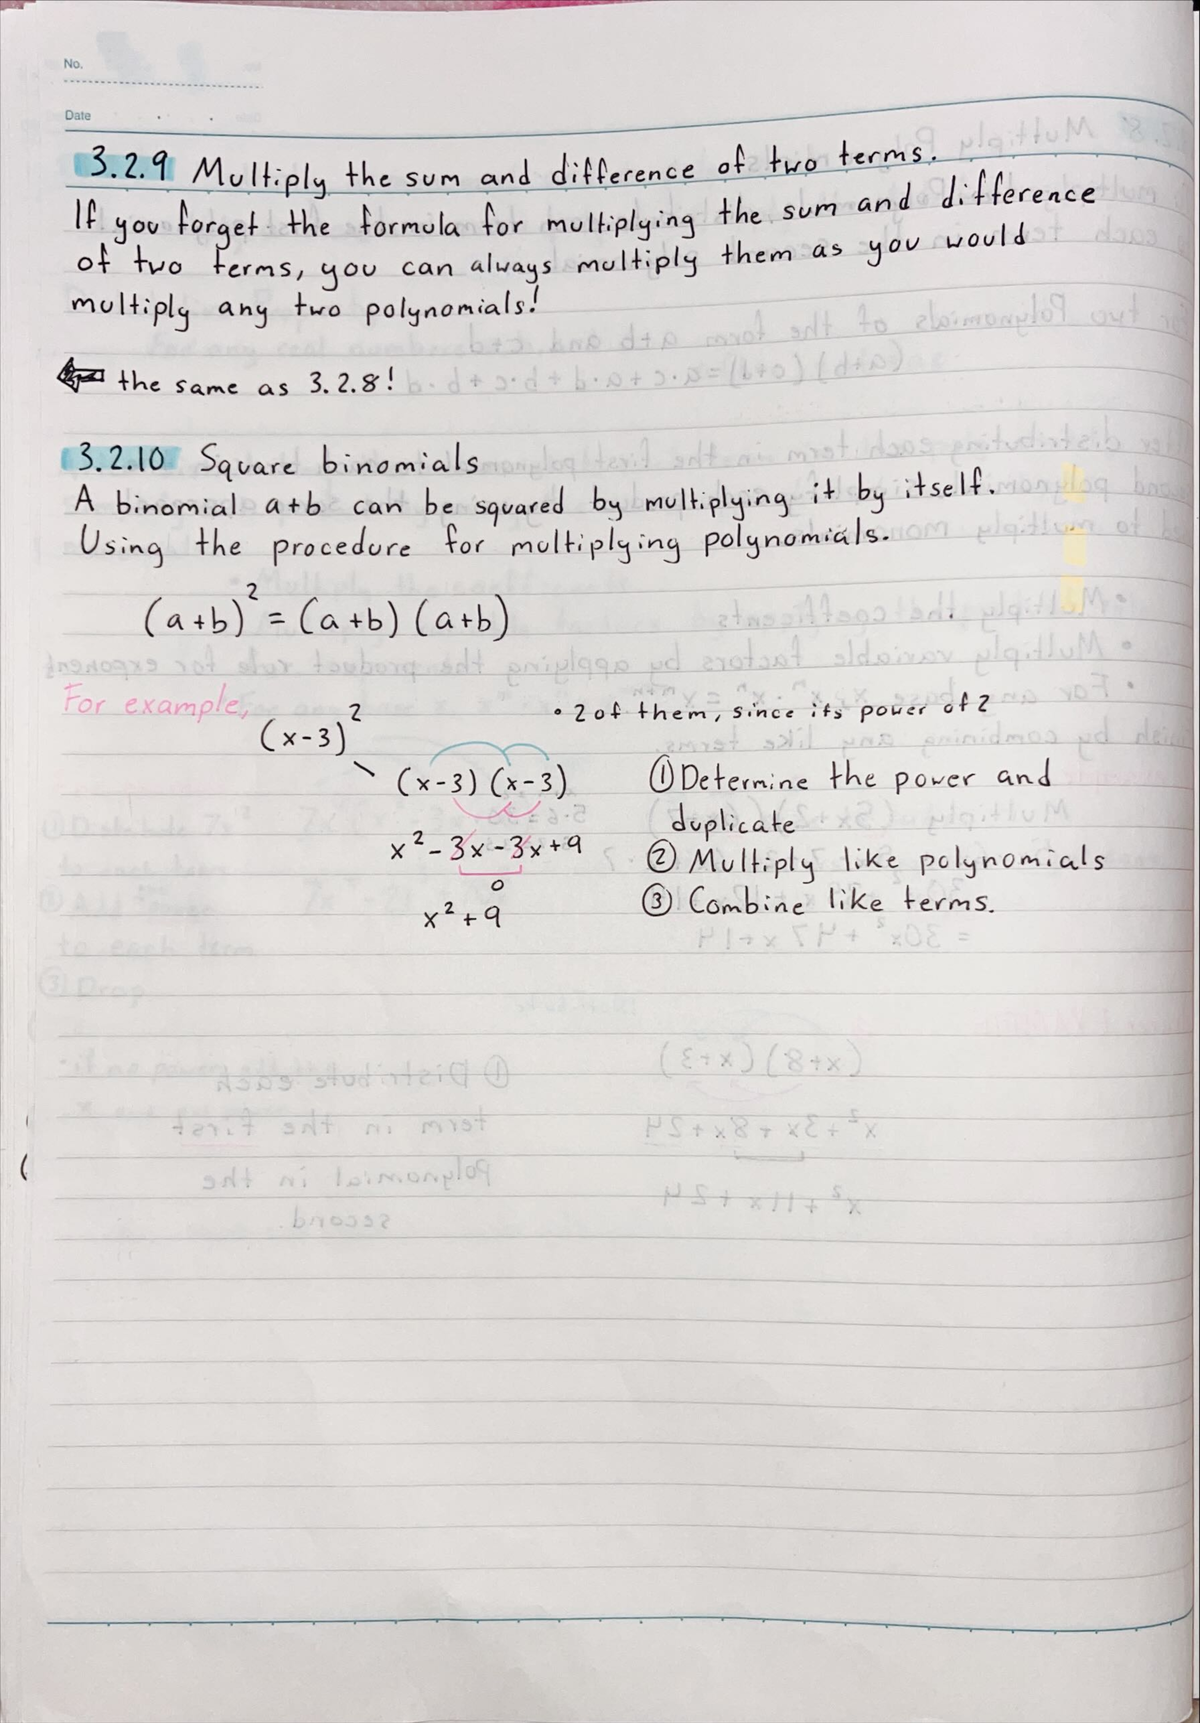 No.
Date
3.2.9 Multiply the sum and difference of two terms.
If you forget the formula for multiplying the sum and difference
of two terms, you can always multiply them as you would
multiply any two polynomials!
the same as 3.2.8!
3.2.10 Square binomials
A binomial a+b can be squared by multiplying it by itself.
Using the procedure for multiplying polynomials.
(a+b)² = (a+b) (a+b)
For example,
(x-3)²
• 2 of them, since its power of 2
(x-3) (x-3)
① Determine the power and
duplicate
x² - 3x - 3x + 9
② Multiply like polynomials
0
x² + 9
③ Combine like terms.